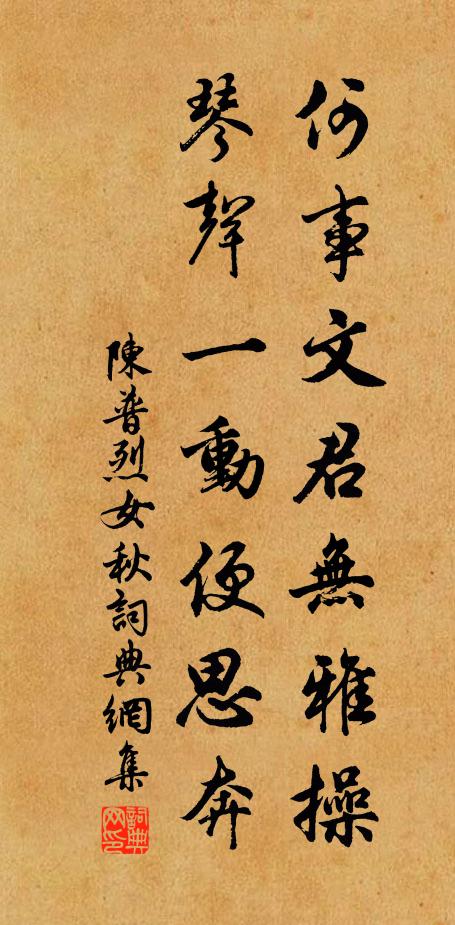 何事文君無雅操
琴聲一動便思奔
陳普烈女秋詞典網集
詞典网印